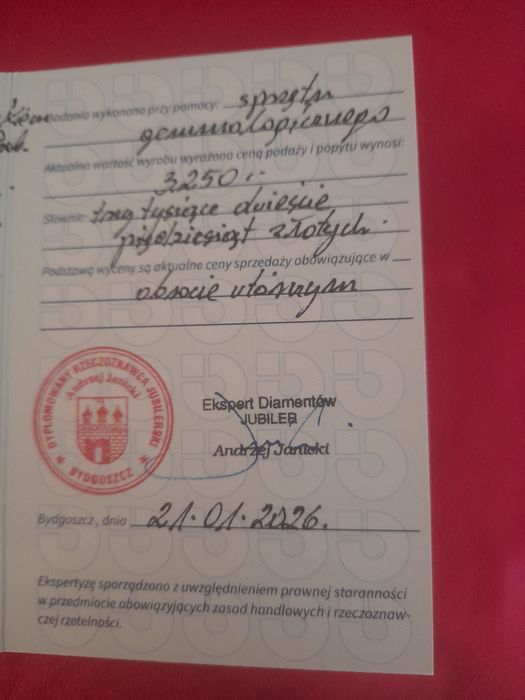 Badania wykonano przy pomocy: sprzętu
gemmologicznego
Aktualna wartość wyrobu wyrażona ceną podaży i popytu wynosi:
3250.-
Słownie: trzy tysiące dwieście
pięćdziesiąt złotych.
Podstawą wyceny są aktualne ceny sprzedaży obowiązujące w
obrocie wtórnym
DYPLOMOWANY RZECZOZNAWCA JUBILERSKI
Andrzej Janicki
BYDGOSZCZ
Ekspert Diamentów
JUBILER
Andrzej Janicki
Bydgoszcz, dnia 21.01.2026.
Ekspertyzę sporządzono z uwzględnieniem prawnej staranności
w przedmiocie obowiązyjących zasad handlowych i rzeczoznaw-
czej rzetelności.